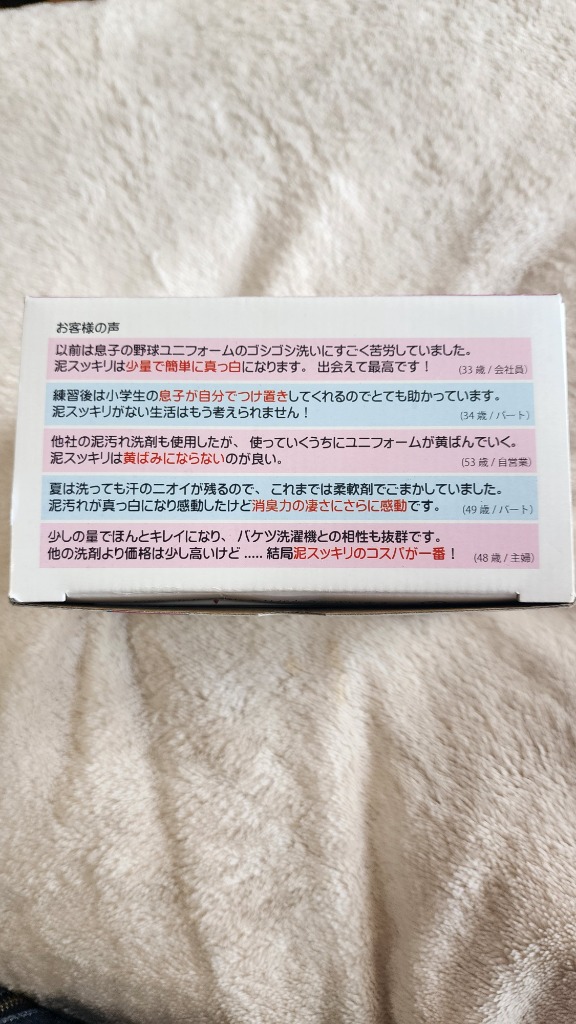 お客様の声
以前は息子の野球ユニフォームのゴシゴシ洗いにすごく苦労していました。
泥スッキリは少量で簡単に真っ白になります。 出会えて最高です！ (33 歳 / 会社員)
練習後は小学生の息子が自分でつけ置きしてくれるのでとても助かっています。
泥スッキリがない生活はもう考えられません！ (34 歳 / パート)
他社の泥汚れ洗剤も使用したが、 使っていくうちにユニフォームが黄ばんでいく。
泥スッキリは黄ばみにならないのが良い。 (53 歳 / 自営業)
夏は洗っても汗のニオイが残るので、 これまでは柔軟剤でごまかしていました。
泥汚れが真っ白になり感動したけど消臭力の凄さにさらに感動です。 (49 歳 / パート)
少しの量でほんとキレイになり、 バケツ洗濯機との相性も抜群です。
他の洗剤より価格は少し高いけど ..... 結局泥スッキリのコスパが一番！ (48 歳 / 主婦)